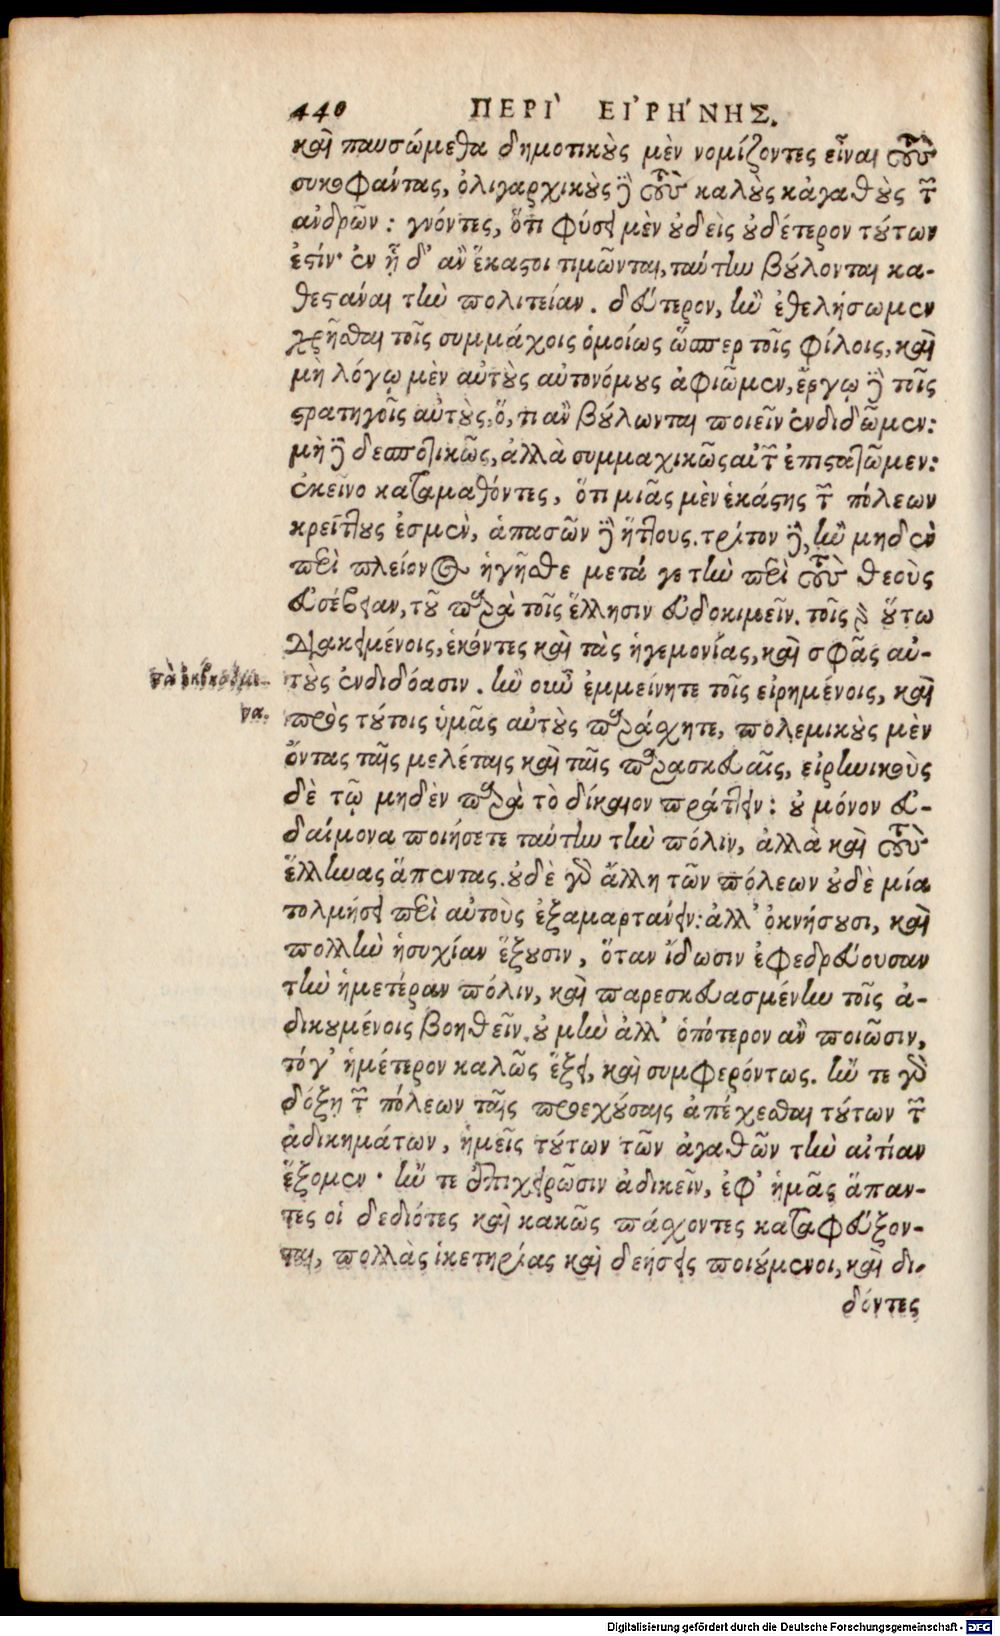 440 ΠΕΡΙ` ΕΙ᾿ΡΗ´ΝΗΣ.
καὶ παυσώμεθα δημοτικοὺς μὲν νομίζοντες εἶναι τοὺς
συκοφάντας, ὀλιγαρχικοὺς δὲ τοὺς καλοὺς κἀγαθοὺς τῶν
ἀνδρῶν: γνόντες, ὅτι φύσει μὲν οὐδεὶς οὐδέτερον τούτων
ἐστίν· ἐν ᾗ δ' ἂν ἕκαστοι τιμῶνται, ταύτην βούλονται κα-
θεστάναι τὴν πολιτείαν. δεύτερον, ἢν ἐθελήσωμεν
χρῆσθαι τοῖς συμμάχοις ὁμοίως ὥσπερ τοῖς φίλοις, καὶ
μὴ λόγῳ μὲν αὐτοὺς αὐτονόμους ἀφιῶμεν, ἔργῳ δὲ τοῖς
στρατηγοῖς αὐτοὺς, ὅ, τι ἂν βούλωνται ποιεῖν ἐνδιδῶμεν:
μὴ δὲ δεσποτικῶς, ἀλλὰ συμμαχικῶς αὐτῶν ἐπιστατῶμεν:
ἐκεῖνο καταμαθόντες, ὅτι μιᾶς μὲν ἑκάστης τῶν πόλεων
κρείττους ἐσμὲν, ἁπασῶν δὲ ἥττους. τρίτον δὲ, ἢν μηδὲν
περὶ πλείονος ἡγῆσθε μετά γε τὴν περὶ τοὺς θεοὺς
εὐσέβειαν, τοῦ παρὰ τοῖς ἕλλησιν εὐδοκιμεῖν. τοῖς γὰρ οὕτω
διακειμένοις, ἑκόντες καὶ τὰς ἡγεμονίας, καὶ σφᾶς αὐ-
τοὺς ἐνδιδόασιν. ἢν οὖν ἐμμείνητε τοῖς εἰρημένοις, καὶ
πρὸς τούτοις ὑμᾶς αὐτοὺς παράσχητε, πολεμικοὺς μὲν
ὄντας ταῖς μελέταις καὶ ταῖς παρασκευαῖς, εἰρηνικοὺς
δὲ τῷ μηδὲν παρὰ τὸ δίκαιον πράττειν: οὐ μόνον εὐ-
δαίμονα ποιήσετε ταύτην τὴν πόλιν, ἀλλὰ καὶ τοὺς
ἕλληνας ἅπαντας. οὐδὲ γὰρ ἄλλη τῶν πόλεων οὐδὲ μία
τολμήσει περὶ αὐτοὺς ἐξαμαρτάνειν: ἀλλ' ὀκνήσουσι, καὶ
πολλὴν ἡσυχίαν ἕξουσιν, ὅταν ἴδωσιν ἐφεδρεύουσαν
τὴν ἡμετέραν πόλιν, καὶ παρεσκευασμένην τοῖς ἀ-
δικουμένοις βοηθεῖν. οὐ μὴν ἀλλ' ὁπότερον ἂν ποιῶσιν,
τόγ' ἡμέτερον καλῶς ἕξει, καὶ συμφερόντως. ἤν τε γὰρ
δόξῃ τῶν πόλεων ταῖς προεχούσαις ἀπέχεσθαι τούτων τῶν
ἀδικημάτων, ἡμεῖς τούτων τῶν ἀγαθῶν τὴν αἰτίαν
ἕξομεν· ἤν τε ἐπιχειρῶσιν ἀδικεῖν, ἐφ' ἡμᾶς ἅπαν-
τες οἱ δεδιότες καὶ κακῶς πάσχοντες καταφεύξον-
ται, πολλὰς ἱκετηρίας καὶ δεήσεις ποιούμενοι, καὶ δι-
δόντες
Digitalisierung gefördert durch die Deutsche Forschungsgemeinschaft - DFG